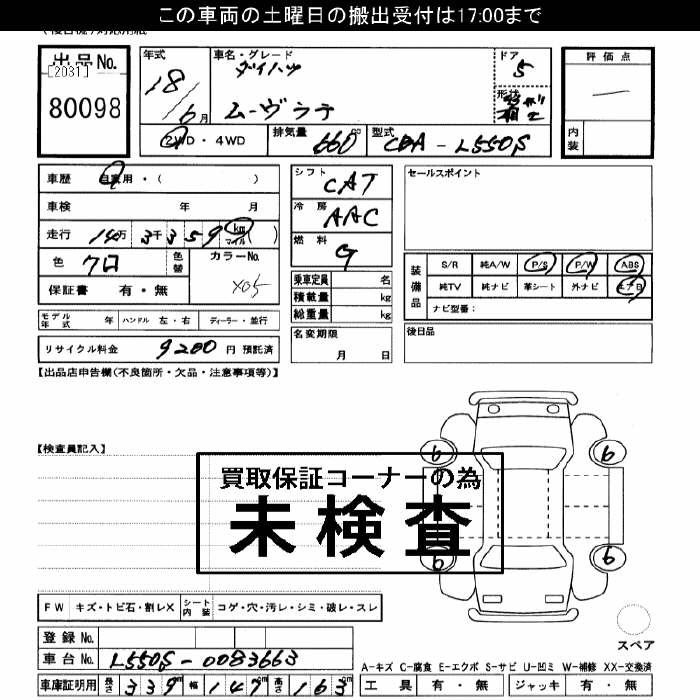 この車両の土曜日の搬出受付は17:00まで
出品No.
[2031]
80098
年式
18/6月
車名・グレード
ダイハツ
ムーヴラテ
ドア
5
形状
評価点
内装
2WD・4WD
排気量 660 cc
型式 CBA-L550S
車歴 自家用・( )
車検 年 月
走行 14万3千359 km マイル ( )
色 クロ
色替
カラーNo.
X05
保証書 有・無
シフト
CAT
冷房
AAC
燃料
G
乗車定員 名
積載量 kg
総重量 kg
セールスポイント
装備品
S/R 純A/W P/S P/W ABS
純TV 純ナビ 革シート 外ナビ エアB
ナビ型番:
モデル年式 年 ハンドル 左・右 ディーラー・並行
リサイクル料金 9200 円 預託済
名変期限
月 日
後日品
【出品店申告欄(不良箇所・欠品・注意事項等)】
【検査員記入】
買取保証コーナーの為
未検査
6
6
6
6
FW キズ・トビ石・割レX シート内装 コゲ・穴・汚レ・シミ・破レ・スレ
登録No.
車台No. L550S-0083663
車庫証明用 長さ 339 cm 幅 147 cm 高さ 163 cm
スペア
A-キズ C-腐食 E-エクボ S-サビ U-凹ミ W-補修 XX-交換済
工具 有・無 ジャッキ 有・無